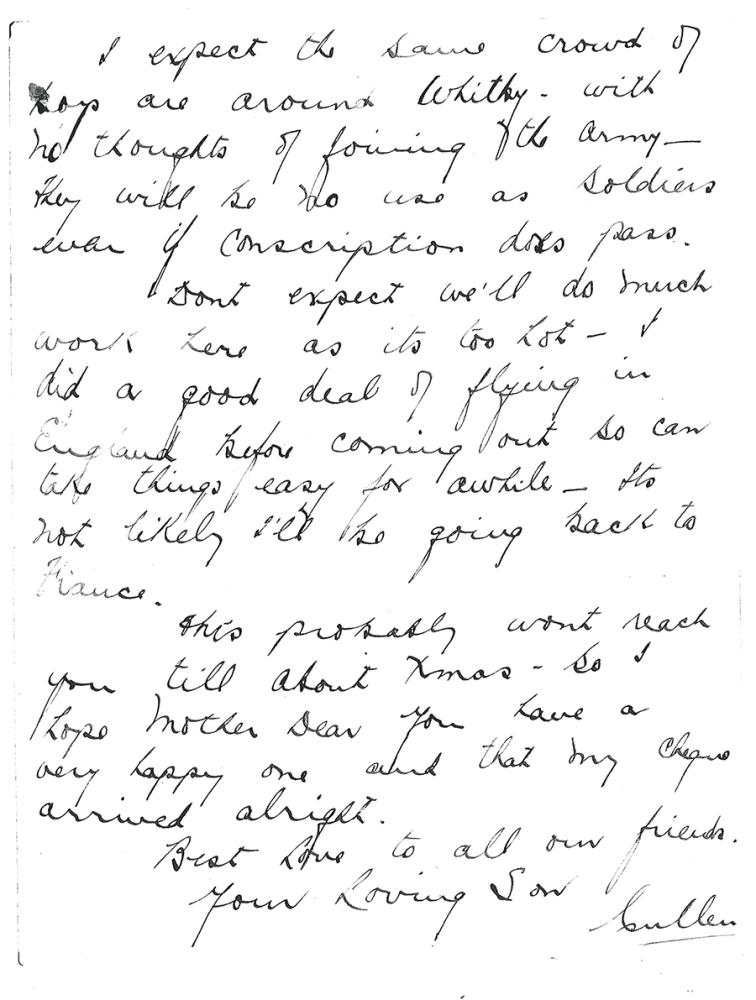 I expect the same crowd of
boys are around Whitby - with
no thoughts of joining the army -
they will be no use as soldiers
even if conscription does pass.
Dont expect we'll do much
work here as its too hot - I
did a good deal of flying in
England before coming out so can
take things easy for awhile - Its
not likely I'll be going back to
France.
This probably wont reach
you till about Xmas - so I
hope Mother Dear you have a
very happy one and that my cheque
arrived alright.
Best love to all our friends.
Your Loving Son
Cullen